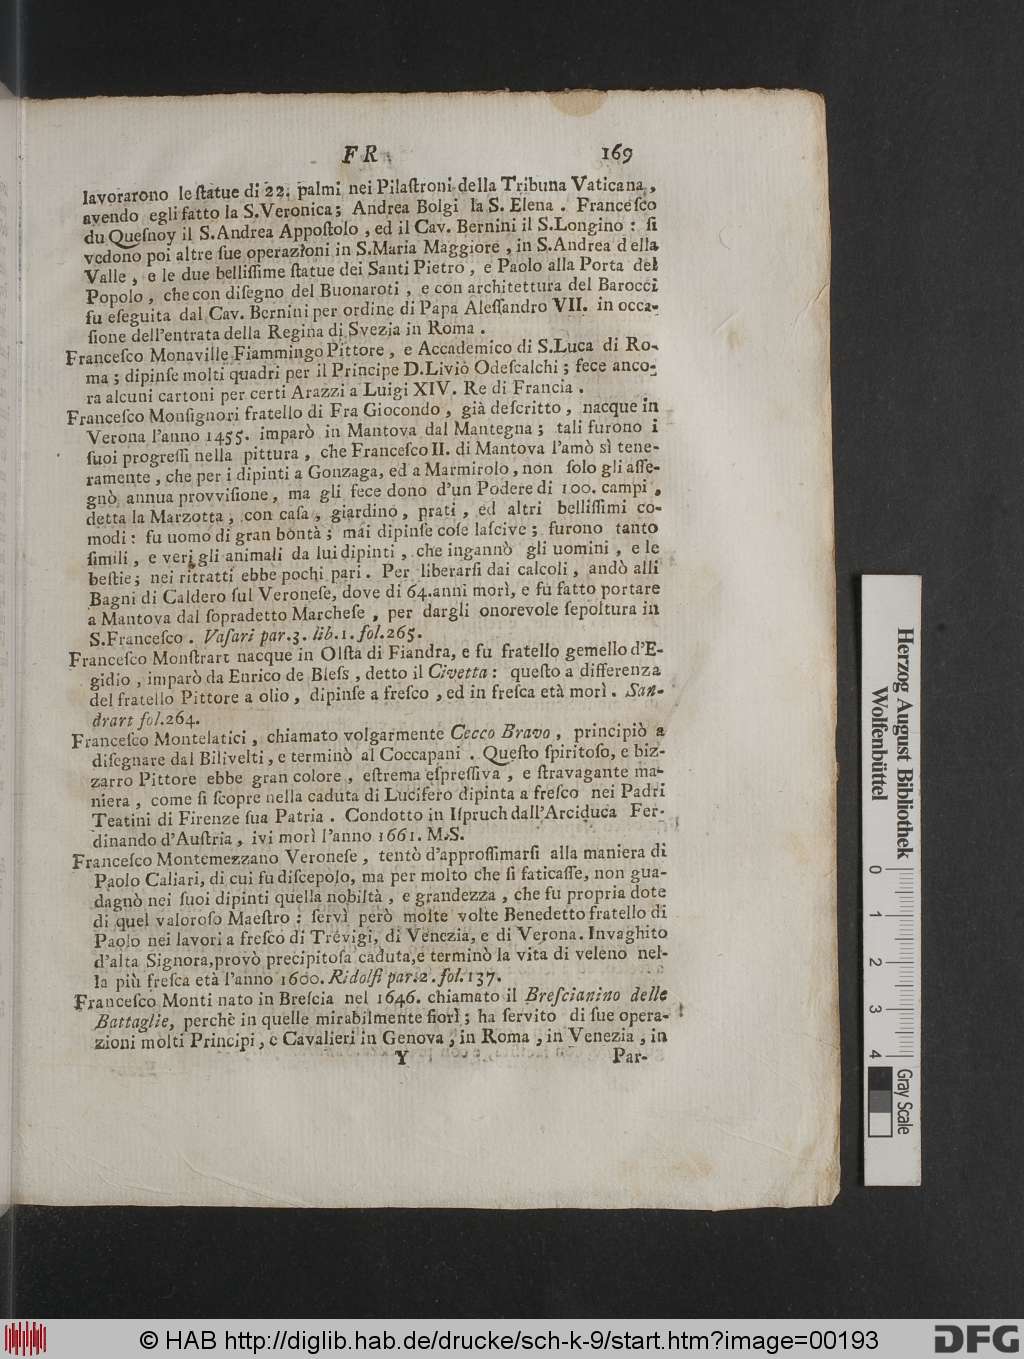 FR 169
lavorarono le ſtatue di 22. palmi nei Pilaſtroni della Tribuna Vaticana,
avendo egli fatto la S.Veronica; Andrea Bolgi la S. Elena. Franceſco
du Queſnoy il S.Andrea Appoſtolo, ed il Cav. Bernini il S.Longino: ſi
vedono poi altre ſue operazioni in S.Maria Maggiore, in S.Andrea della
Valle, e le due belliſſime ſtatue dei Santi Pietro, e Paolo alla Porta del
Popolo, che con diſegno del Buonaroti, e con architettura del Barocci
fu eſeguita dal Cav. Bernini per ordine di Papa Aleſſandro VII. in occa-
ſione dell'entrata della Regina di Svezia in Roma.
Franceſco Monaville Fiammingo Pittore, e Accademico di S.Luca di Ro-
ma; dipinſe molti quadri per il Principe D.Livio Odeſcalchi; fece anco-
ra alcuni cartoni per certi Arazzi a Luigi XIV. Re di Francia.
Franceſco Monſignori fratello di Fra Giocondo, già deſcritto, nacque in
Verona l'anno 1455. imparò in Mantova dal Mantegna; tali furono i
ſuoi progreſſi nella pittura, che Franceſco II. di Mantova l'amò sì tene-
ramente, che per i dipinti a Gonzaga, ed a Marmirolo, non ſolo gli aſſe-
gnò annua provviſione, ma gli fece dono d'un Podere di 100. campi,
detta la Marzotta, con caſa, giardino, prati, ed altri belliſſimi co-
modi: fu uomo di gran bontà; mai dipinſe coſe laſcive; furono tanto
ſimili, e veri gli animali da lui dipinti, che ingannò gli uomini, e le
beſtie; nei ritratti ebbe pochi pari. Per liberarſi dai calcoli, andò alli
Bagni di Caldero ſul Veroneſe, dove di 64.anni morì, e fu fatto portare
a Mantova dal ſopradetto Marcheſe, per dargli onorevole ſepoltura in
S.Franceſco. Vaſari par.3. lib.1. fol.265.
Franceſco Monſtrart nacque in Olſta di Fiandra, e fu fratello gemello d'E-
gidio, imparò da Enrico de Bleſs, detto il Civetta: queſto a differenza
del fratello Pittore a olio, dipinſe a freſco, ed in freſca età morì. San-
drart fol.264.
Franceſco Montelatici, chiamato volgarmente Cecco Bravo, principiò a
diſegnare dal Bilivelti, e terminò al Coccapani. Queſto ſpiritoſo, e biz-
zarro Pittore ebbe gran colore, eſtrema eſpreſſiva, e ſtravagante ma-
niera, come ſi ſcopre nella caduta di Lucifero dipinta a freſco nei Padri
Teatini di Firenze ſua Patria. Condotto in Iſpruch dall'Arciduca Fer-
dinando d'Auſtria, ivi morì l'anno 1661. M.S.
Franceſco Montemezzano Veroneſe, tentò d'approſſimarſi alla maniera di
Paolo Caliari, di cui fu diſcepolo, ma per molto che ſi faticaſſe, non gua-
dagnò nei ſuoi dipinti quella nobiltà, e grandezza, che fu propria dote
di quel valoroſo Maeſtro: ſervì però molte volte Benedetto fratello di
Paolo nei lavori a freſco di Trevigi, di Venezia, e di Verona. Invaghito
d'alta Signora,provò precipitoſa caduta,e terminò la vita di veleno nel-
la più freſca età l'anno 1600. Ridolfi par.2. fol.137.
Franceſco Monti nato in Breſcia nel 1646. chiamato il Breſcianino delle
Battaglie, perchè in quelle mirabilmente fiorì; ha ſervito di ſue opera-
zioni molti Principi, e Cavalieri in Genova, in Roma, in Venezia, in
Y Par-
Herzog August Bibliothek
Wolfenbüttel
0 1 2 3 4
Gray Scale
© HAB http://diglib.hab.de/drucke/sch-k-9/start.htm?image=00193
DFG